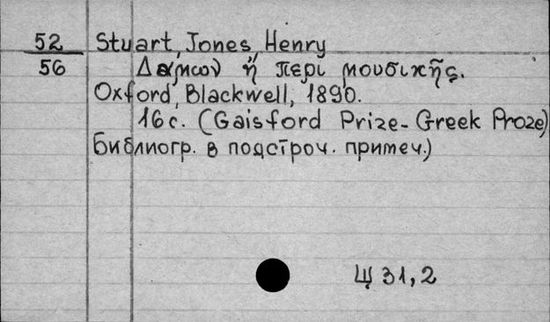 52 Stuart, Jones, Henry
56 Δαμων ἤ περι μουσικῆς.
Oxford, Blackwell, 1890.
16 c. (Gaisford Prize-Greek Proze)
Библиогр. в подстроч. примеч.)
Щ 31,2